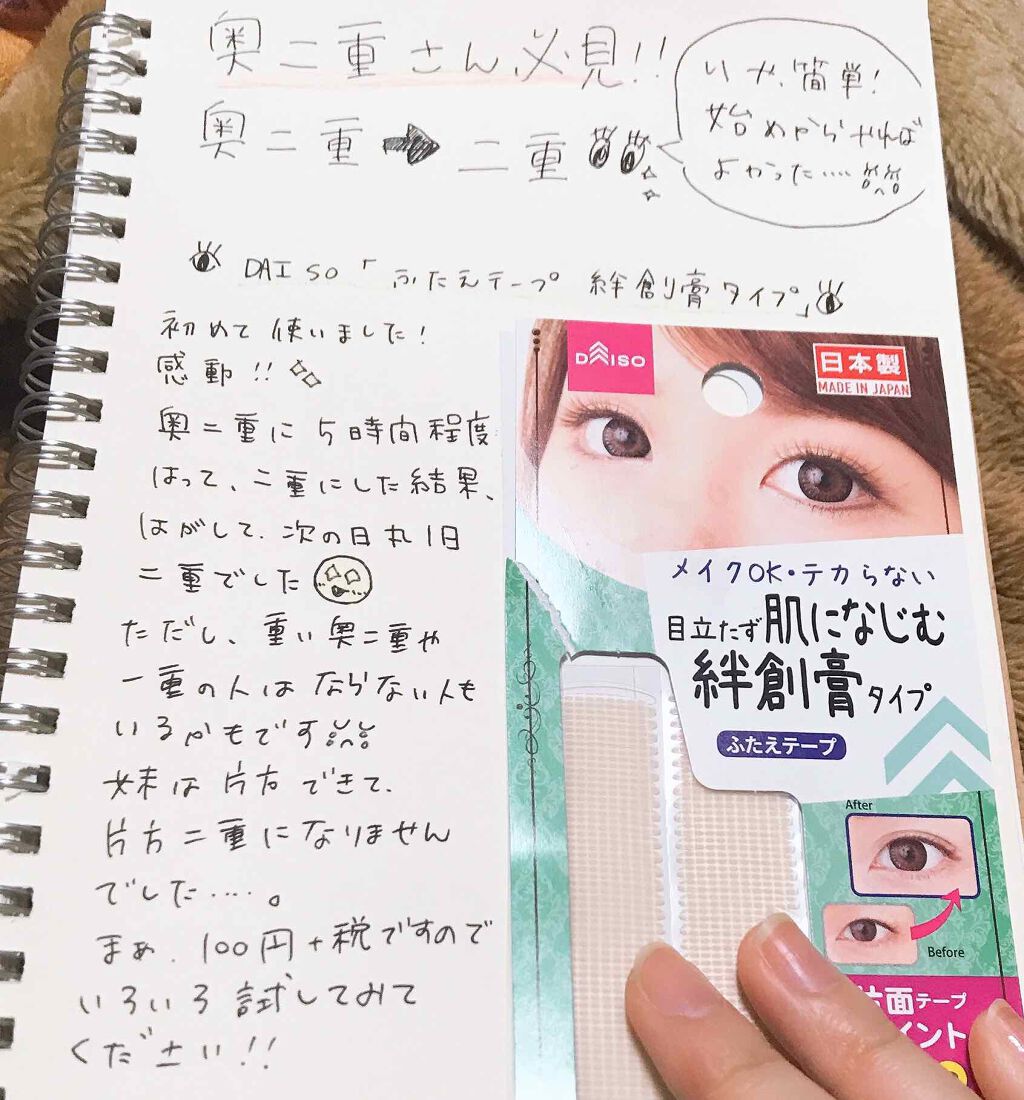 奥二重さん必見!!
奥二重➡二重
いや、簡単!
始めからやれば
よかった....
DAISO「ふたえテープ 絆創膏タイプ」
初めて使いました!
感動!!
奥二重に5時間程度
はって、二重にした結果、
はがして、次の日丸1日
二重でした
ただし、重い奥二重や
一重の人はならない人も
いるかもです
妹は片方できて、
片方二重になりません
でした.....。
まぁ、100円+税ですので
いろいろ試してみて
ください!!
DAISO
日本製
MADE IN JAPAN
メイクOK・テカらない
目立たず肌になじむ
絆創膏タイプ
ふたえテープ
After
Before
片面テープ
イント